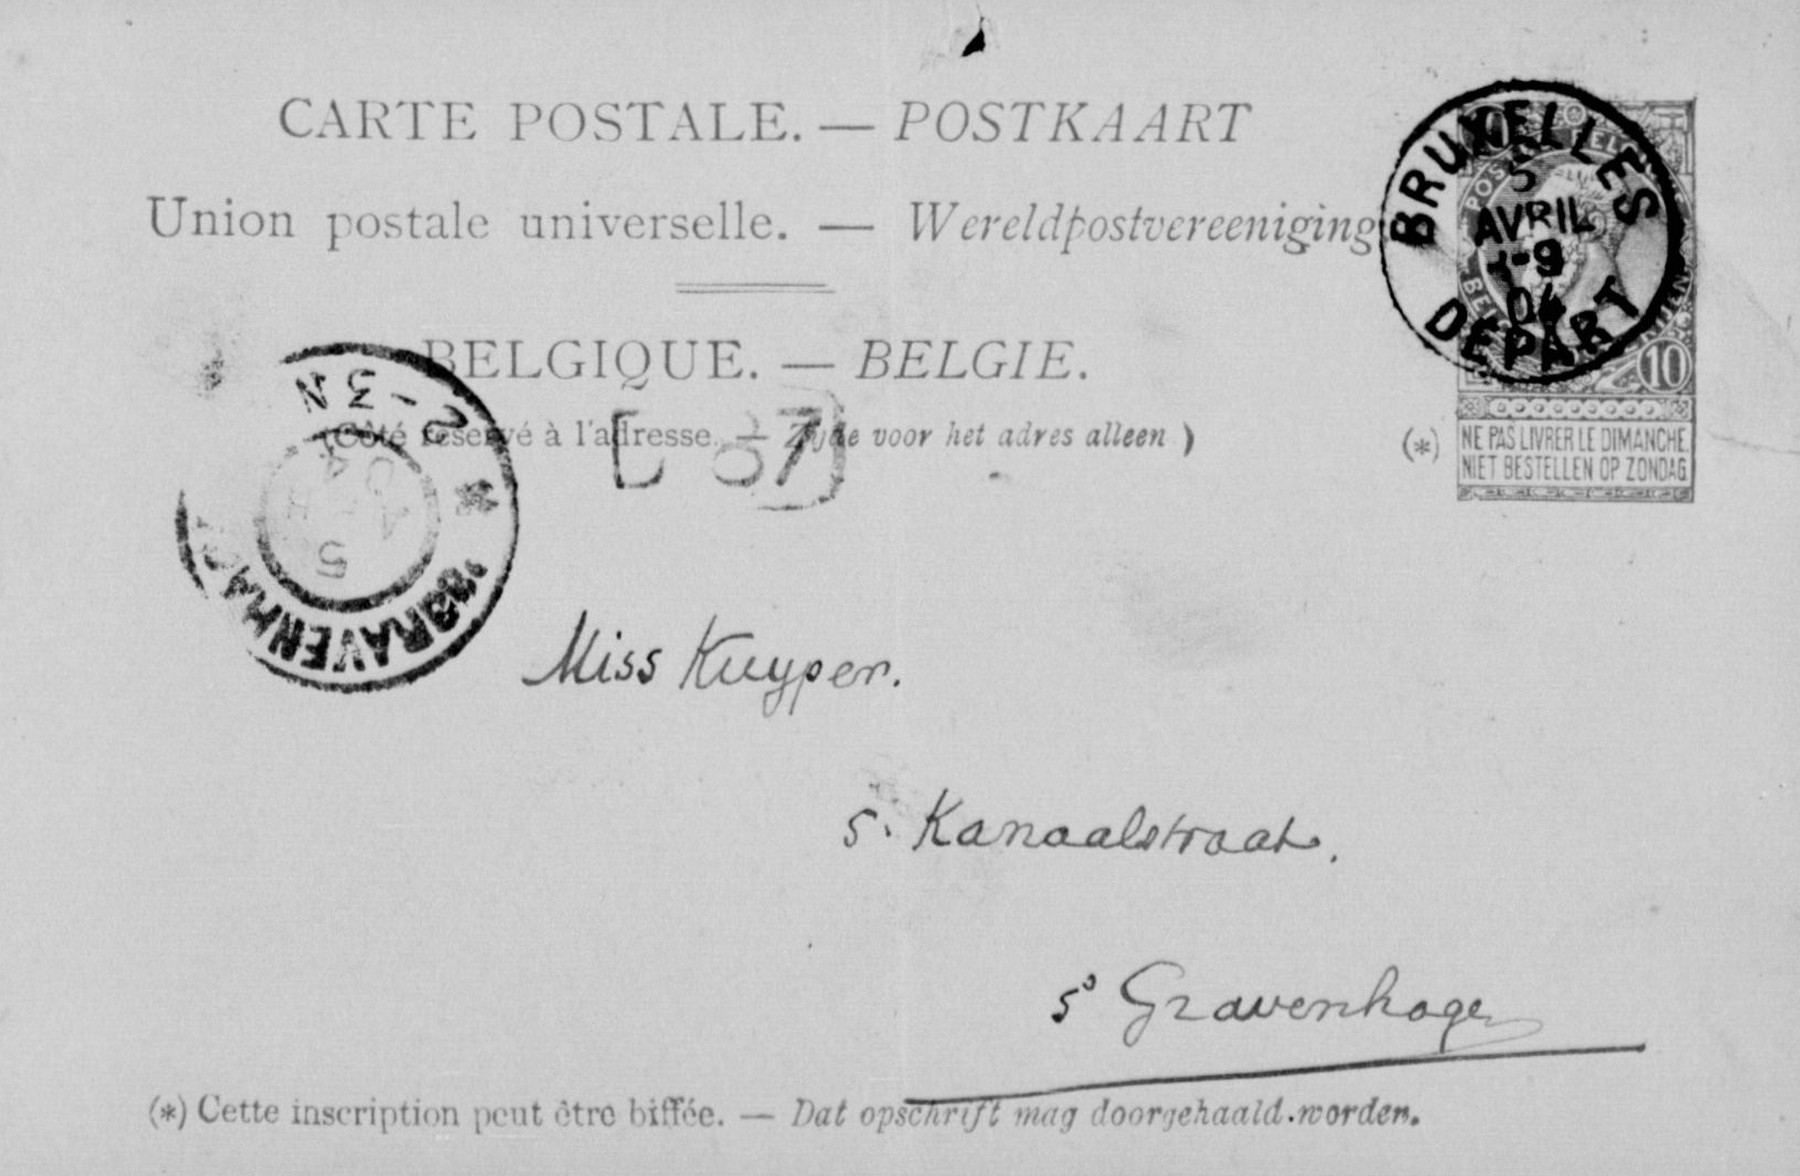 CARTE POSTALE. — POSTKAART
Union postale universelle. — Wereldpostvereeniging
BELGIQUE. — BELGIE.
(Côté réservé à l'adresse. — Zijde voor het adres alleen)
BRUXELLES
5
AVRIL
-9
04
DÉPART
10
(*) NE PAS LIVRER LE DIMANCHE.
NIET BESTELLEN OP ZONDAG
2-3N
5
04
'SGRAVENHA
87
Miss Kuyper.
5. Kanaalstraat.
s' Gravenhage
(*) Cette inscription peut être biffée. — Dat opschrift mag doorgehaald worden.